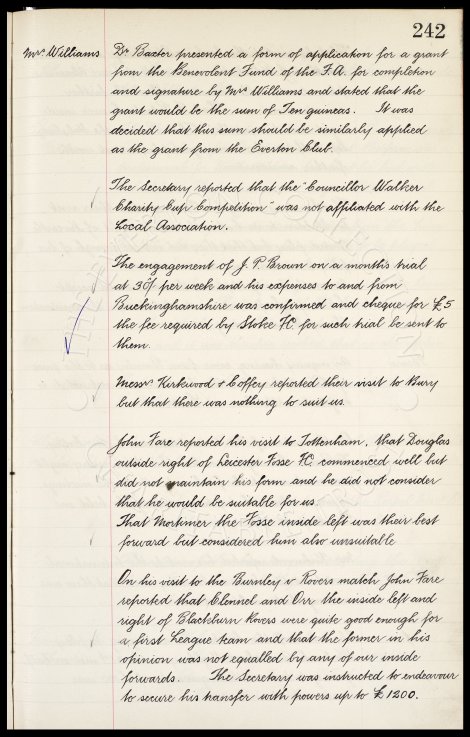 242
Mrs Williams
Dr Baxter presented a form of application for a grant
from the Benevolent Fund of the F.A. for completion
and signature by Mrs Williams and stated that the
grant would be the sum of Ten guineas. It was
decided that this sum should be similarly applied
as the grant from the Everton Club.
The Secretary reported that the "Councillor Walker
Charity Cup Competition" was not affiliated with the
Local Association.
The engagement of J. P. Brown on a month's trial
at 30/- per week and his expenses to and from
Buckinghamshire was confirmed and cheque for £5
the fee required by Stoke F.C. for such trial be sent to
them.
Messrs Kirkwood + Coffey reported their visit to Bury
but that there was nothing to suit us.
John Fare reported his visit to Tottenham, that Douglas
outside right of Leicester Fosse F.C. commenced well but
did not maintain his form and he did not consider
that he would be suitable for us.
That Mortimer the Fosse inside left was their best
forward but considered him also unsuitable
On his visit to the Burnley v Rovers match John Fare
reported that Clennel and Orr the inside left and
right of Blackburn Rovers were quite good enough for
a first League team and that the former in his
opinion was not equalled by any of our inside
forwards. The Secretary was instructed to endeavour
to secure his transfer with powers up to £1200.